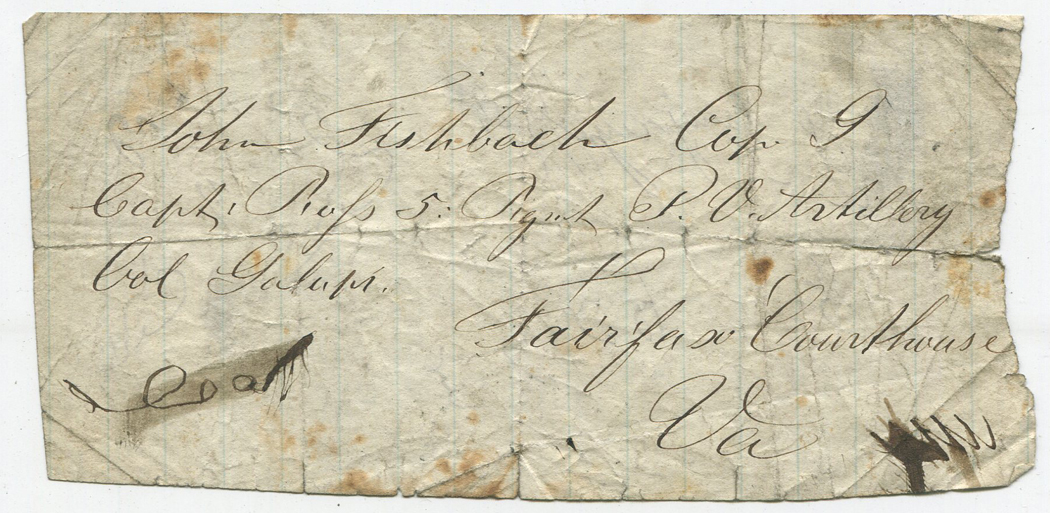 John Fishbach Cop. I
Capt. Ross 5. Rgmt P. V. Artillery
Col Galupi.
Fairfax Courthouse
Va